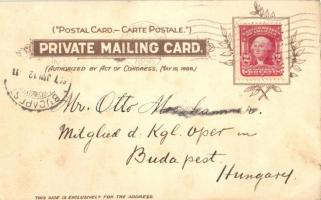 ("POSTAL CARD.—CARTE POSTALE.")
PRIVATE MAILING CARD.
(AUTHORIZED BY ACT OF CONGRESS, MAY 19, 1898.)
BUDAPEST
Mr. Otto
Mitglied d. Kgl. Oper in
Budapest,
Hungary.
THIS SIDE IS EXCLUSIVELY FOR THE ADDRESS.